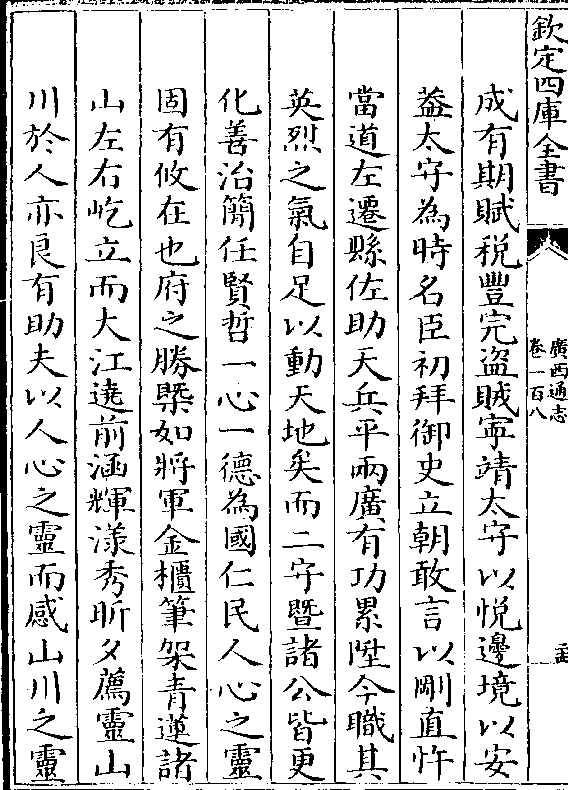 欽定四庫全書
廣西通志
卷一百八
成有期賦税豐完盗賊寧靖太守以悦邊境以安
葢太守為時名臣初拜御史立朝敢言以剛直忤
當道左遷縣佐助天兵平兩廣有功累陞今職其
英烈之氣自足以動天地矣而二守暨諸公皆更
化善治簡任賢哲一心一德為國仁民人心之靈
固有攸在也府之勝槩如將軍金櫃筆架青蓮諸
山左右屹立而大江遶前涵輝漾秀昕夕薦靈山
川於人亦良有助夫以人心之靈而感山川之靈